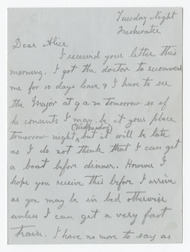 Tuesday Night
Dear Alice
I received your letter this
morning. I got the doctor to recommend
me for 10 days leave & I have to see
the Major at 9 a.m tomorrow so if
he consents I may be at your place
(Wednesday)
tomorrow night, but it will be late
as I do not think that I can get
a boat before dinner. However I
hope you receive this before I arrive
as you may be in bed otherwise
unless I can get a very fast
train.
I have no more to say as